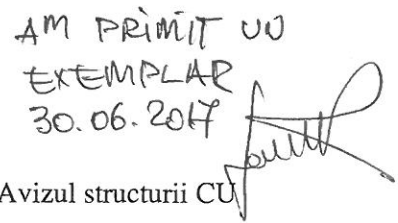 AM PRIMIT UN
EXEMPLAR
30.06.2017
Avizul structurii CU